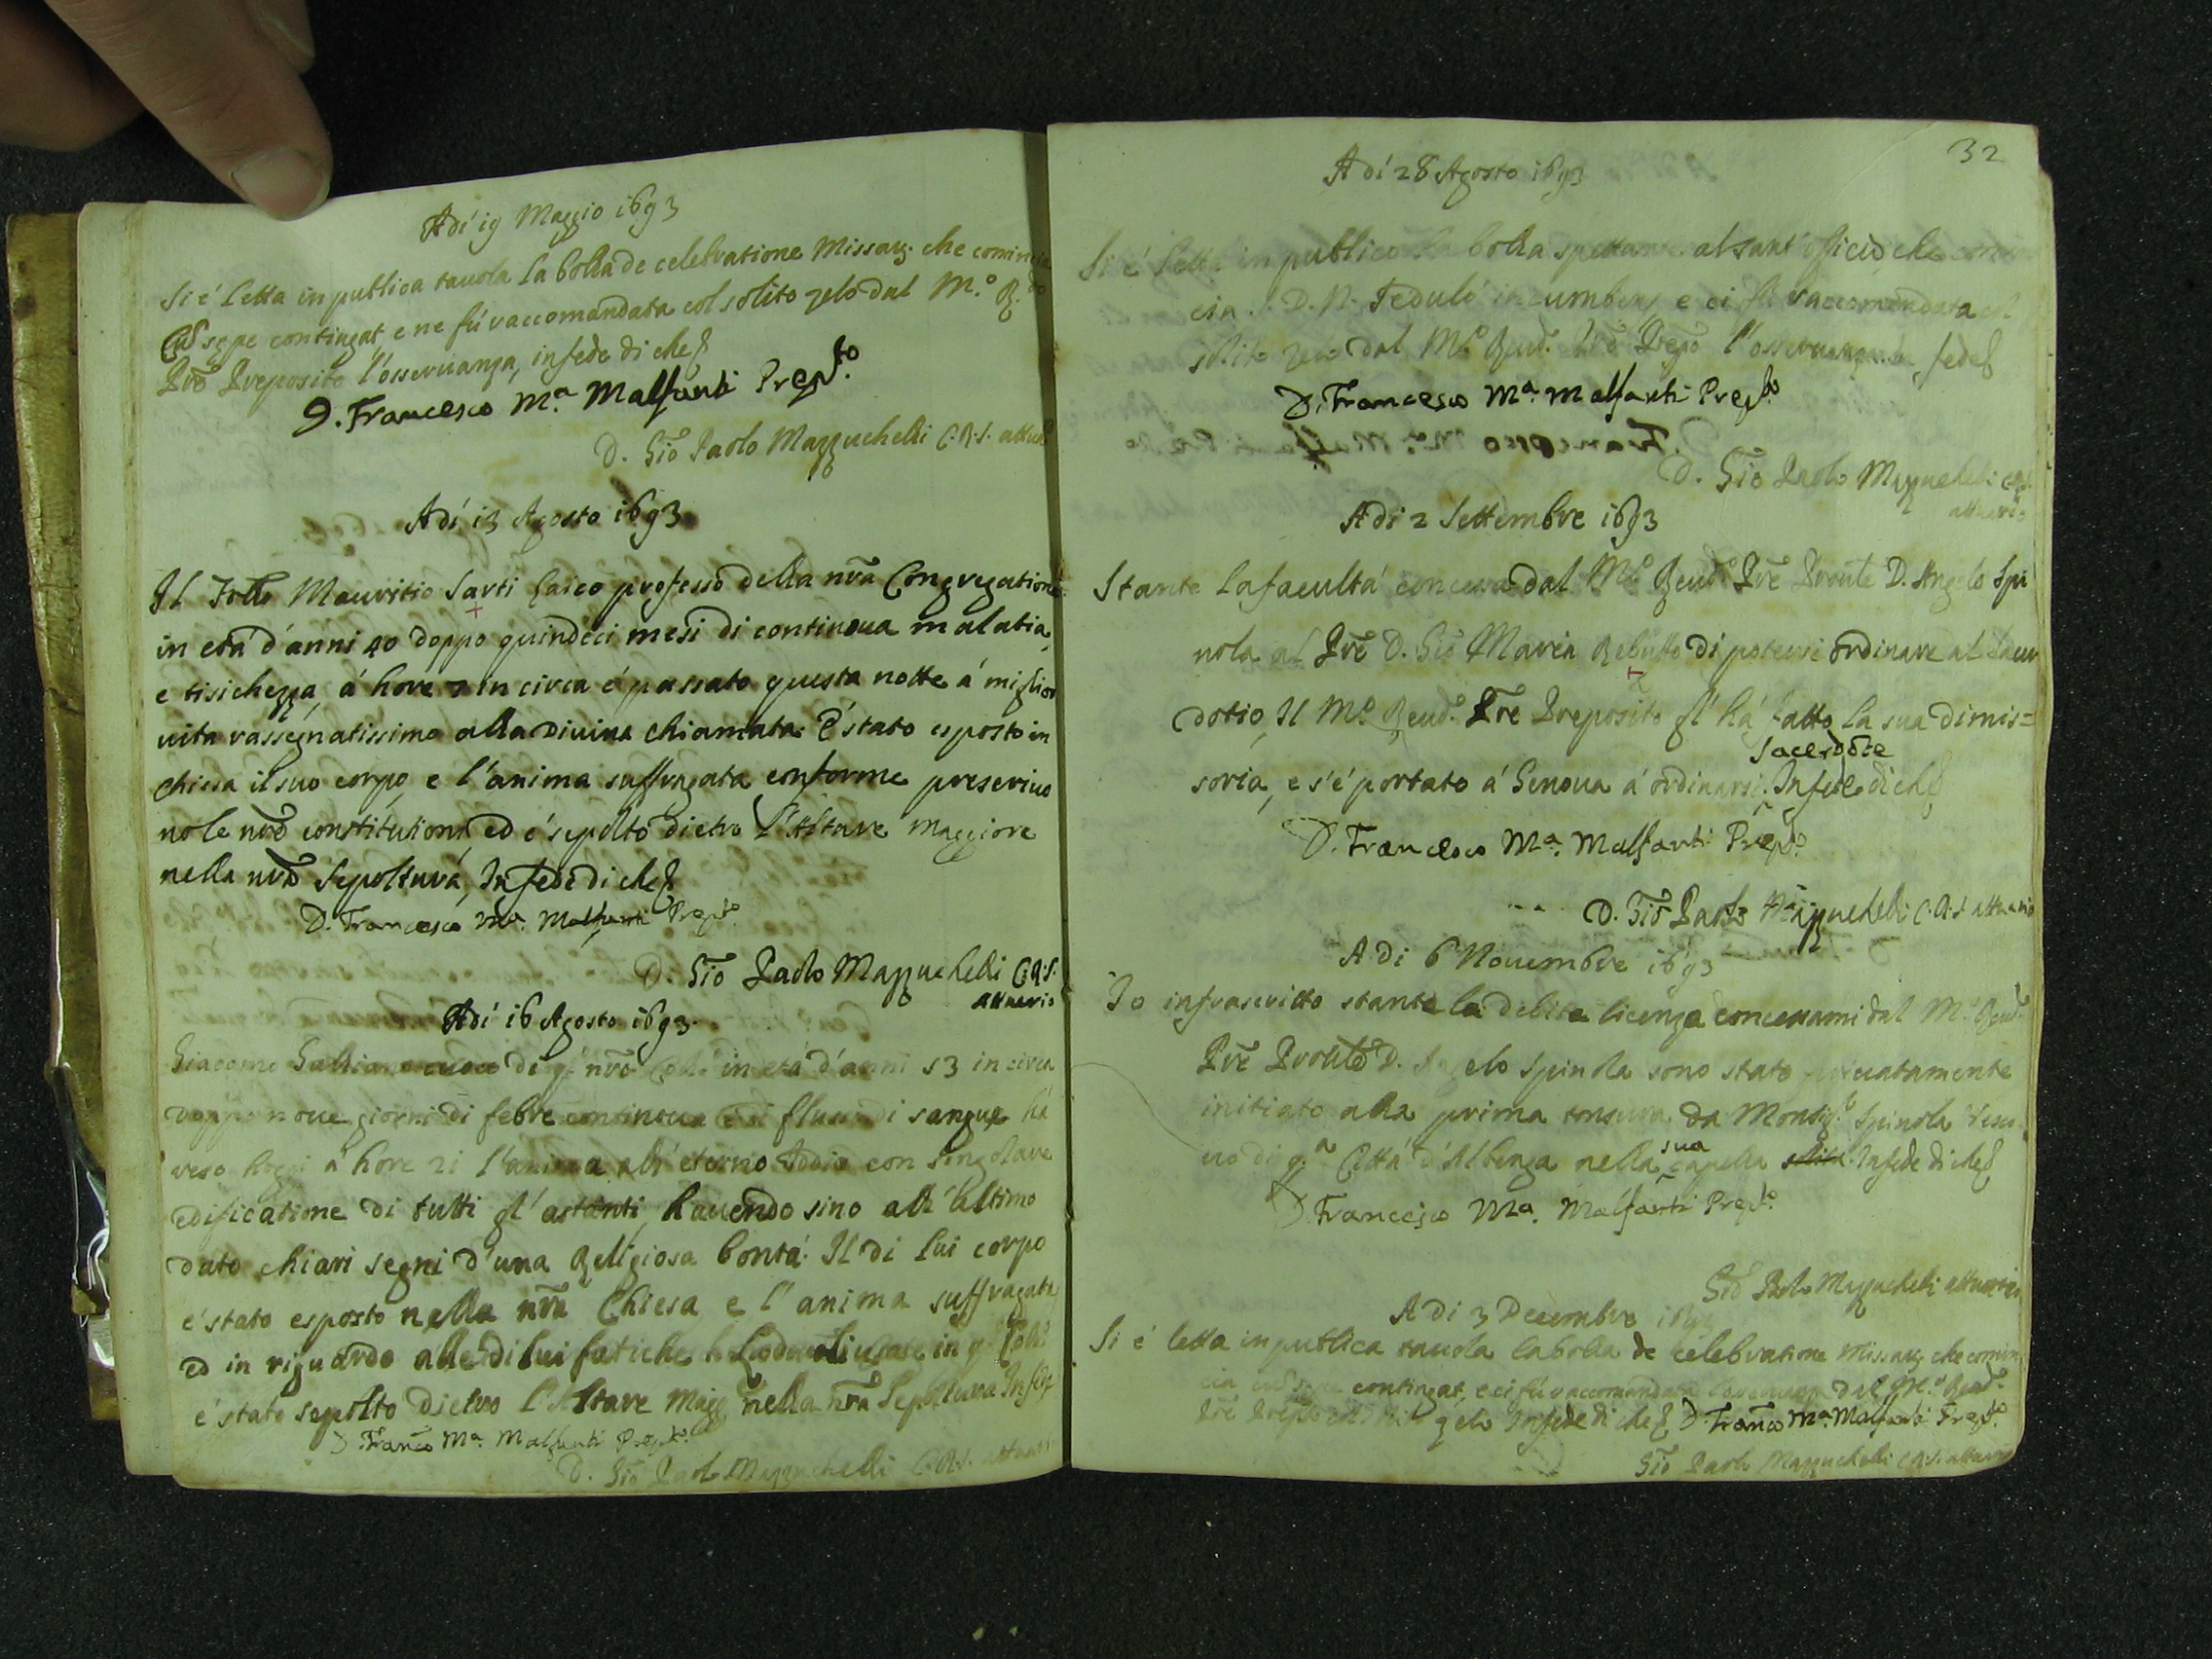 Adí 19 Maggio 1693
Si é letta in publica tauola la bolla de celebratione Missar. che comincia
Cum sepe contingat, e ne fú raccomandata col solito zelo dal M.º R.do
Prē Preposito l'osseruanza, in fede di che
D. Francesco M.a Malfanti Prep.to
D. Gio Paolo Mazzuchelli C.R.S. attuar
Adí 13 Agosto 1693
Il Frello Mauritio Sarti laico professo della nrā Congregatione
in etá d'anni 40 doppo quindeci mesi di continoua malatia,
e tisichezza, á hore in circa é passato questa notte á miglior
uita rassegnatissimo alla Diuina chiamata. É stato esposto in
Chiesa il suo corpo, e l'anima suffragata conforme prescriuo
no le nrē constitutioni, ed é sepolto dietro l'Altare maggiore
nella nrā sepoltura, In fede di che
D. Francesco M.a Malfanti Prep.to
D. Gio Paolo Mazzuchelli C.R.S.
attuario
Adí 16 Agosto 1693
Giacomo Galliano cuoco di q. nrō Coll. in etá d'anni 53 in circa
doppo noue giorni di febre continoua e di flusso di sangue há
reso hoggi á hore 21 l'anima all'eterno Iddio con singolare
edificatione di tutti gl'astanti, hauendo sino all'ultimo
dato chiari segni d'una Religiosa bontá. Il di lui corpo
é stato esposto nella nrā Chiesa e l'anima suffragata,
ed in riguardo alle di lui fatiche in q. Coll.
é stato sepolto dietro l'Altare magg. nella nrā sepoltura In fede
D. Franco M.a Malfanti Prep.to
D. Gio Paolo Mazzuchelli C.R.S. attuar
32
Adí 28 Agosto 1693
Si é letta in publico la bolla spettante al sant'officio, che comin
cia D. N. Seduló incumben, e ci fú raccomandata col
solito zelo dal M.º Reud. Prē Prepo l'osseruanza In fede
D. Francesco M.a Malfanti Prep.to
D. Gio Paolo Mazzuchelli C.R.S.
attuario
Adi 2 Settembre 1693
Stante la facultá concessa dal M.º Reud.º Prē Proule D. Angelo Spi
nola al Prē D. Gio Maria Rebuffo di potersi ordinare al Sacer
dotio, Il M.º Reud.º Prē Preposito gl'há fatto la sua dimis=
Sacerdote
soria, e s'é portato á Genoua á ordinarsi. In fede di che
D. Francesco M.a Malfanti Prep.to
D. Gio Paolo Mazzuchelli C.R.S attuario
A di 6 Nouembre 1693
Io infrascritto stante la debita licenza concessami dal M.º Reud.
Prē Proule D. Angelo Spinola sono stato priuatamente
initiato alla prima tonsura da Monsig.r Spinola Vesco
uo di q.a Cittá d'Albenga nella sua capella In fede di che
D. Francesco M.a Malfanti Prep.to
Gio Paolo Mazzuchelli attuario
A di 3 Decembre 1693
Si é letta in publica tauola la bolla de celebratione Missar. che comin
cia cum sepe contingat, e ci fú raccomandata l'osseruanza dal M.º Reud.º
Prē Prepto col solito zelo In fede di che D. Franco M.a Malfanti Prep.to
Gio Paolo Mazzuchelli C.R.S. attuario